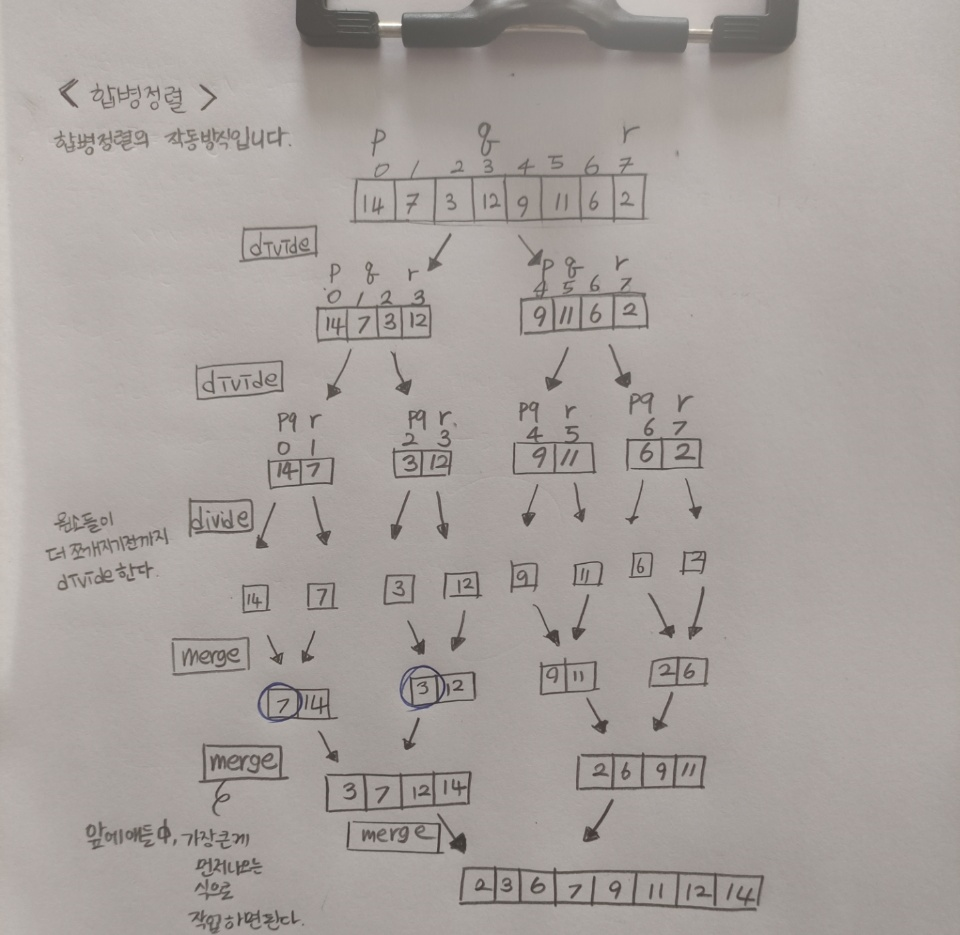 < 합병정렬 >
합병정렬의 작동방식입니다.
p q r
0 1 2 3 4 5 6 7
14 7 3 12 9 11 6 2
divide
p q r p q r
0 1 2 3 4 5 6 7
14 7 3 12 9 11 6 2
divide
pq r pq r pq r pq r
0 1 2 3 4 5 6 7
14 7 3 12 9 11 6 2
divide
원소들이
더 쪼개지기전까지
divide 한다.
14 7 3 12 9 11 6 2
merge
7 14 3 12 9 11 2 6
merge
3 7 12 14 2 6 9 11
앞에애들中, 가장큰게
먼저나오는
식으로
작업하면된다.
merge
2 3 6 7 9 11 12 14